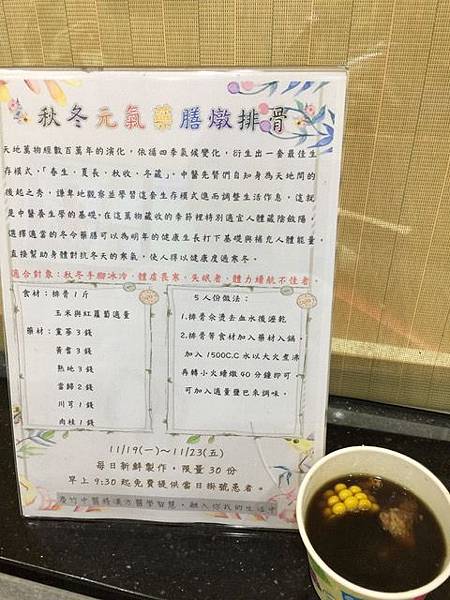 秋冬元氣藥膳燉排骨
天地萬物經數百萬年的演化，依循四季氣候變化，衍生出一套最佳生
存模式，「春生，夏長，秋收，冬藏」，中醫先賢們自知身為天地間的
後起之秀，謙卑地觀察並學習這套生存模式進而調整生活作息，這就
是中醫養生學的基礎。在這萬物藏收的季節裡特別適宜人體藏陰斂陽，
選擇適當的冬令藥膳可以為明年的健康生長打下基礎與補充人體能量，
直接幫助身體對抗冬天的寒氣，使人得以健康度過寒冬。
適合對象：秋冬手腳冰冷、體虛長寒、失眠者、體力續航不佳者。
食材：排骨1斤
玉米與紅蘿蔔適量
藥材：黨蔘3錢
黃耆3錢
熟地3錢
當歸2錢
川芎1錢
肉桂1錢
5人份做法：
1.排骨汆燙去血水後瀝乾
2.排骨等食材加入藥材入鍋，
加入1500C.C水以大火煮沸
再轉小火續燉40分鐘即可，
可加入適量鹽巴來調味。
11/19(一)～11/23(五)
每日新鮮製作，限量30份
早上9:30起免費提供當日掛號患者。
廣竹中醫將漢方醫學智慧，融入你我的生活中